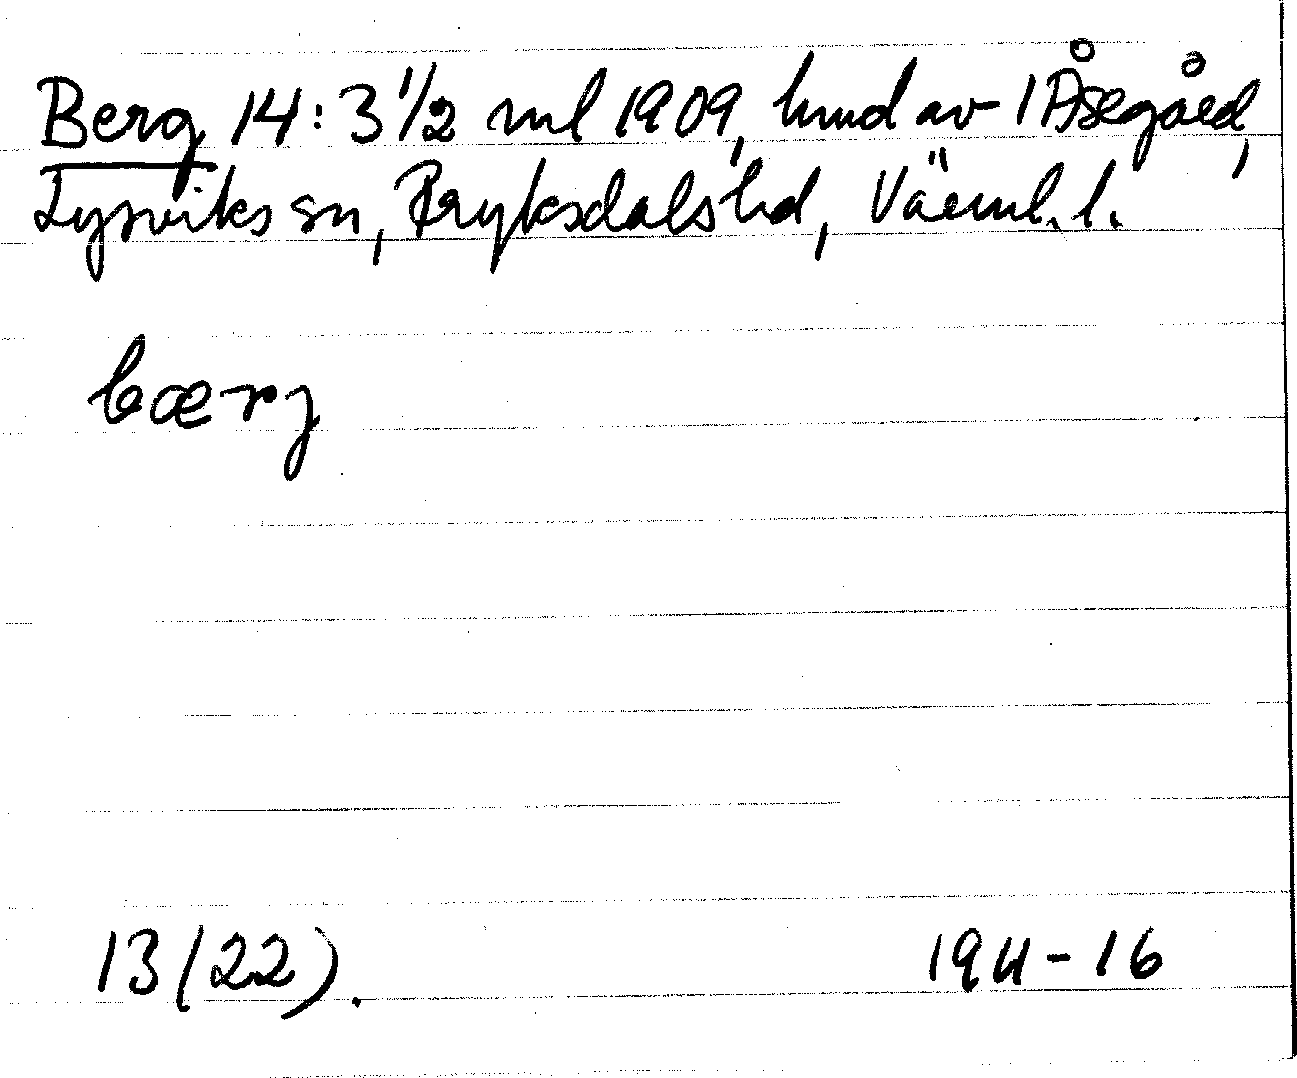 Berg 14: 3 1/2 ml 1909, hmd av 1 Åsegård,
Lysviks sn, Fryksdals hd, Värml. l.
bærj
13 (22). 1911-16